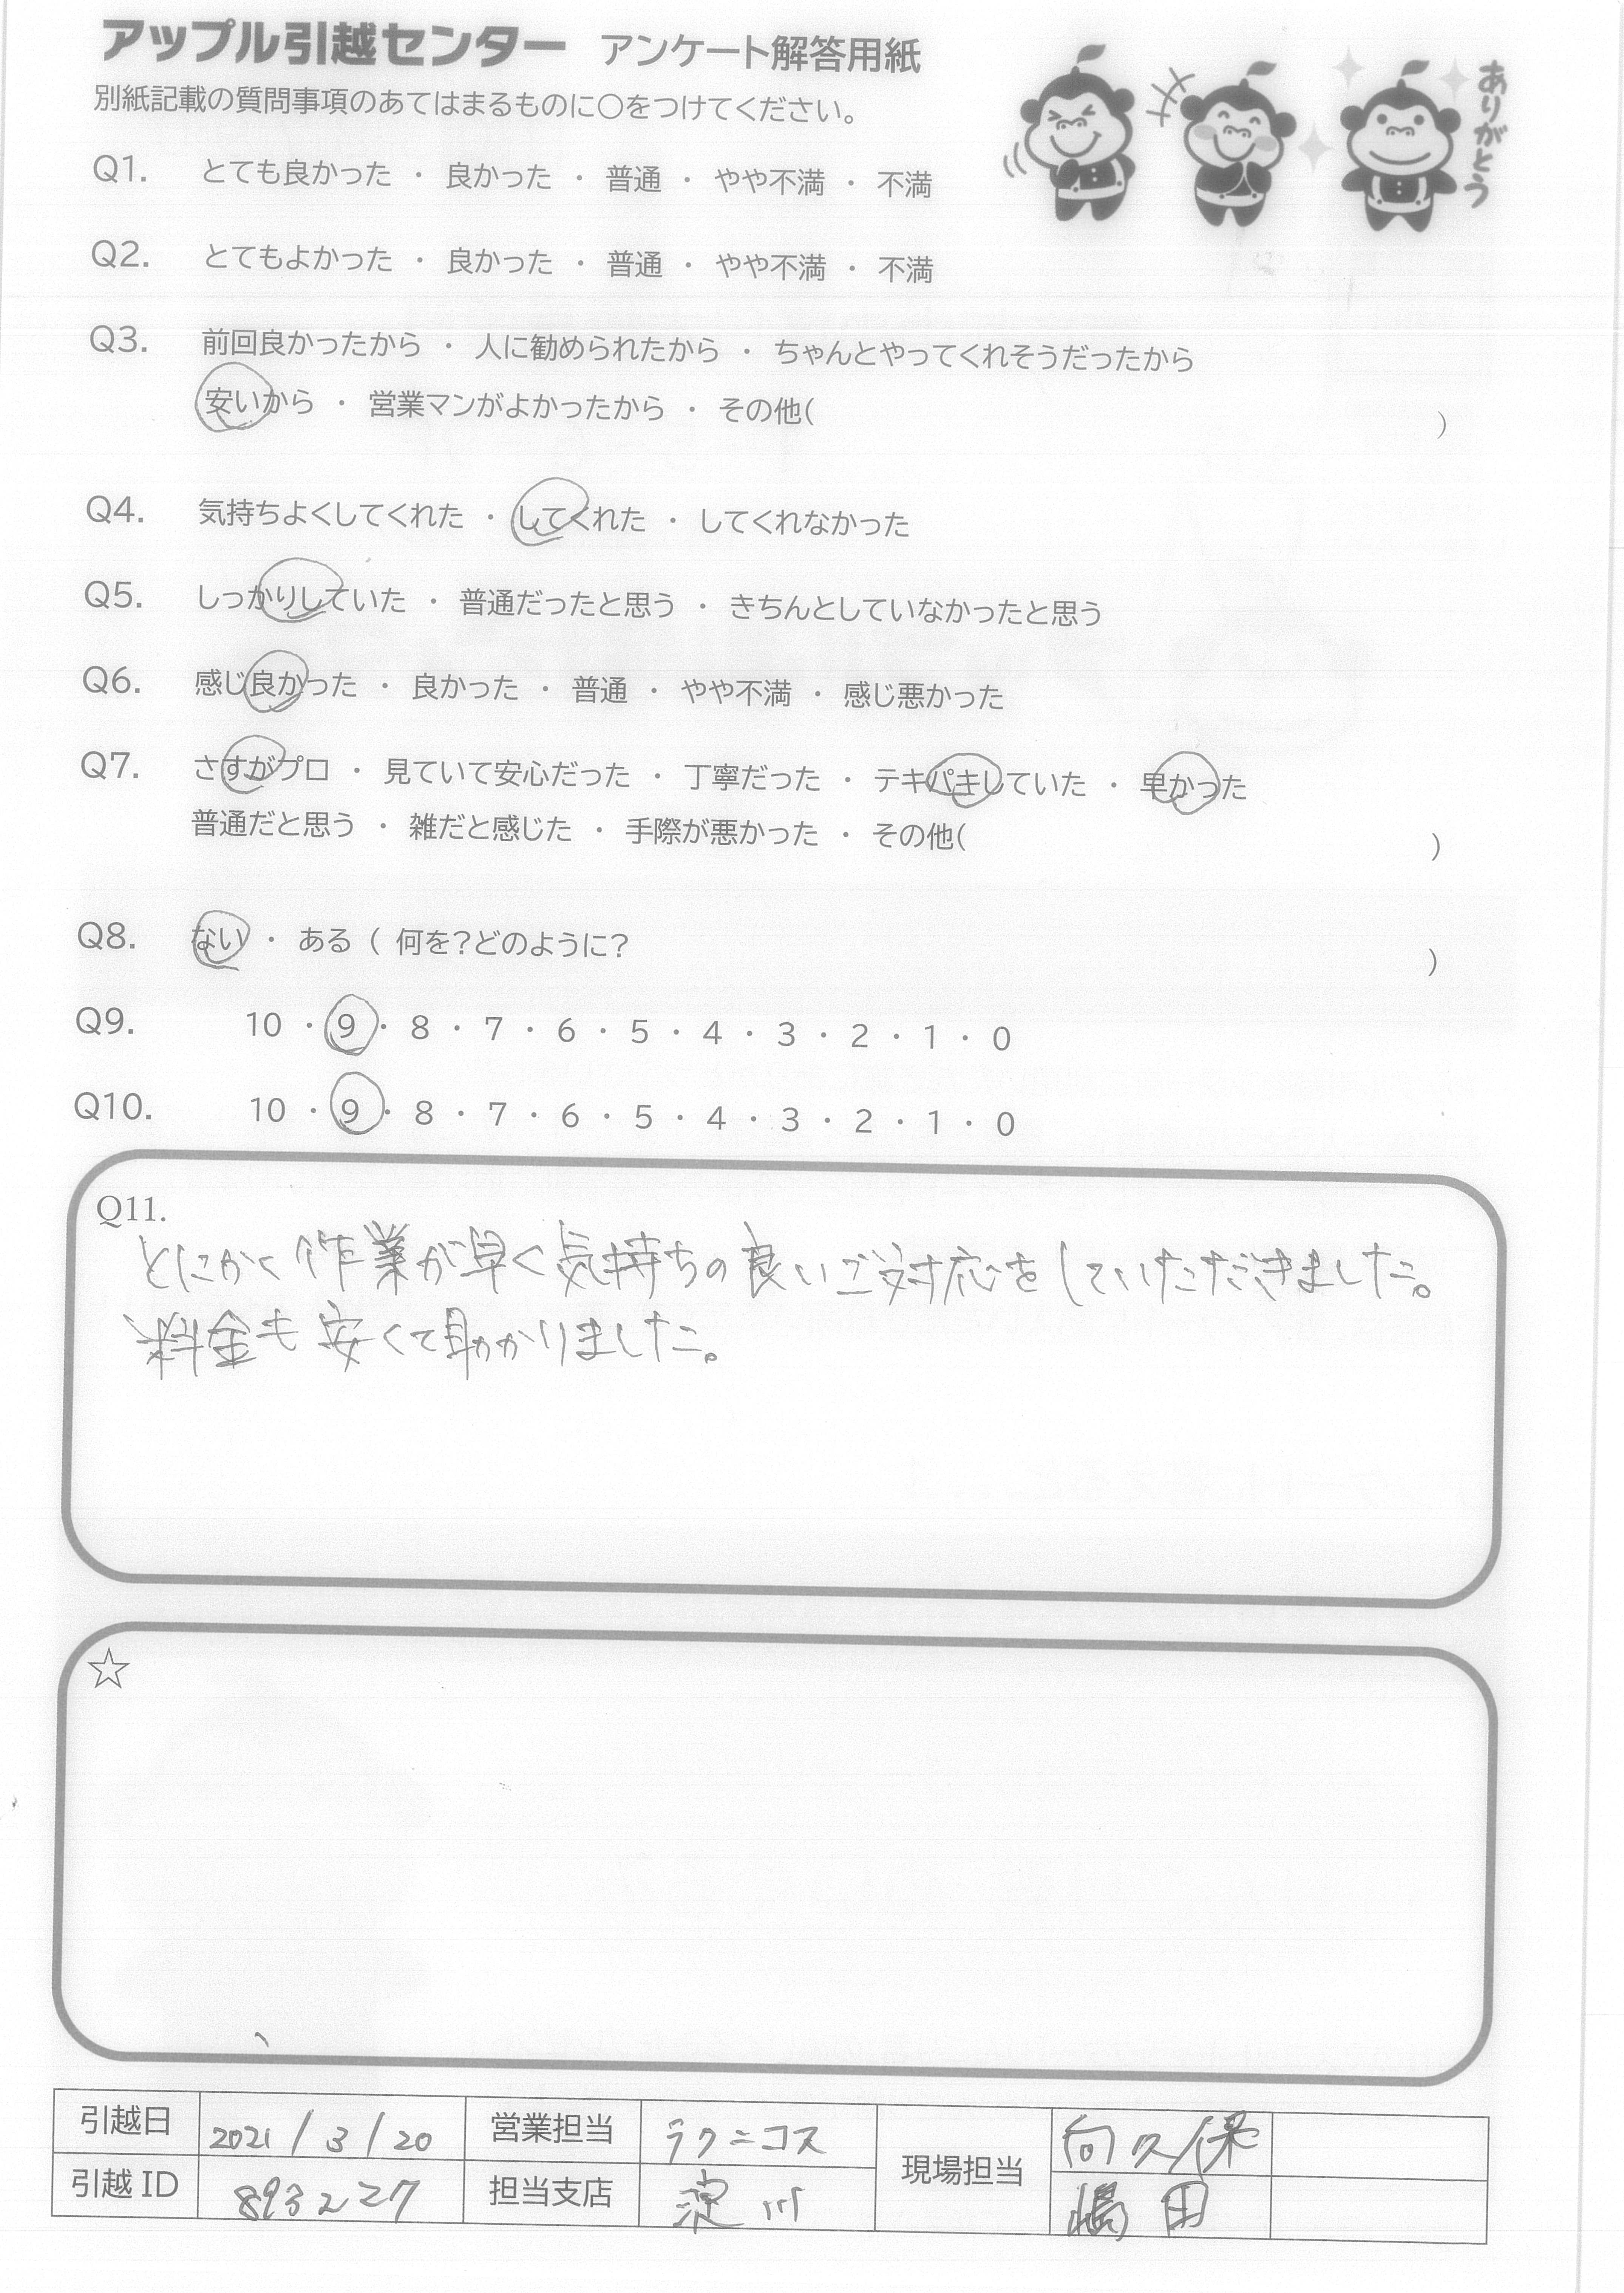 アップル引越センター アンケート解答用紙
別紙記載の質問事項のあてはまるものに〇をつけてください。
ありがとう
Q1. とても良かった ・ 良かった ・ 普通 ・ やや不満 ・ 不満
Q2. とてもよかった ・ 良かった ・ 普通 ・ やや不満 ・ 不満
Q3. 前回良かったから ・ 人に勧められたから ・ ちゃんとやってくれそうだったから
安いから ・ 営業マンがよかったから ・ その他( )
Q4. 気持ちよくしてくれた ・ してくれた ・ してくれなかった
Q5. しっかりしていた ・ 普通だったと思う ・ きちんとしていなかったと思う
Q6. 感じ良かった ・ 良かった ・ 普通 ・ やや不満 ・ 感じ悪かった
Q7. さすがプロ ・ 見ていて安心だった ・ 丁寧だった ・ テキパキしていた ・ 早かった
普通だと思う ・ 雑だと感じた ・ 手際が悪かった ・ その他( )
Q8. ない ・ ある ( 何を?どのように? )
Q9. 10 ・ 9 ・ 8 ・ 7 ・ 6 ・ 5 ・ 4 ・ 3 ・ 2 ・ 1 ・ 0
Q10. 10 ・ 9 ・ 8 ・ 7 ・ 6 ・ 5 ・ 4 ・ 3 ・ 2 ・ 1 ・ 0
Q11.
とにかく作業が早く気持ちの良いご対応をしていただきました。
料金も安くて助かりました。
☆
引越日 2021/3/20 営業担当 ラクニコス 現場担当 向久保
引越ID 893227 担当支店 淀川 嶋田